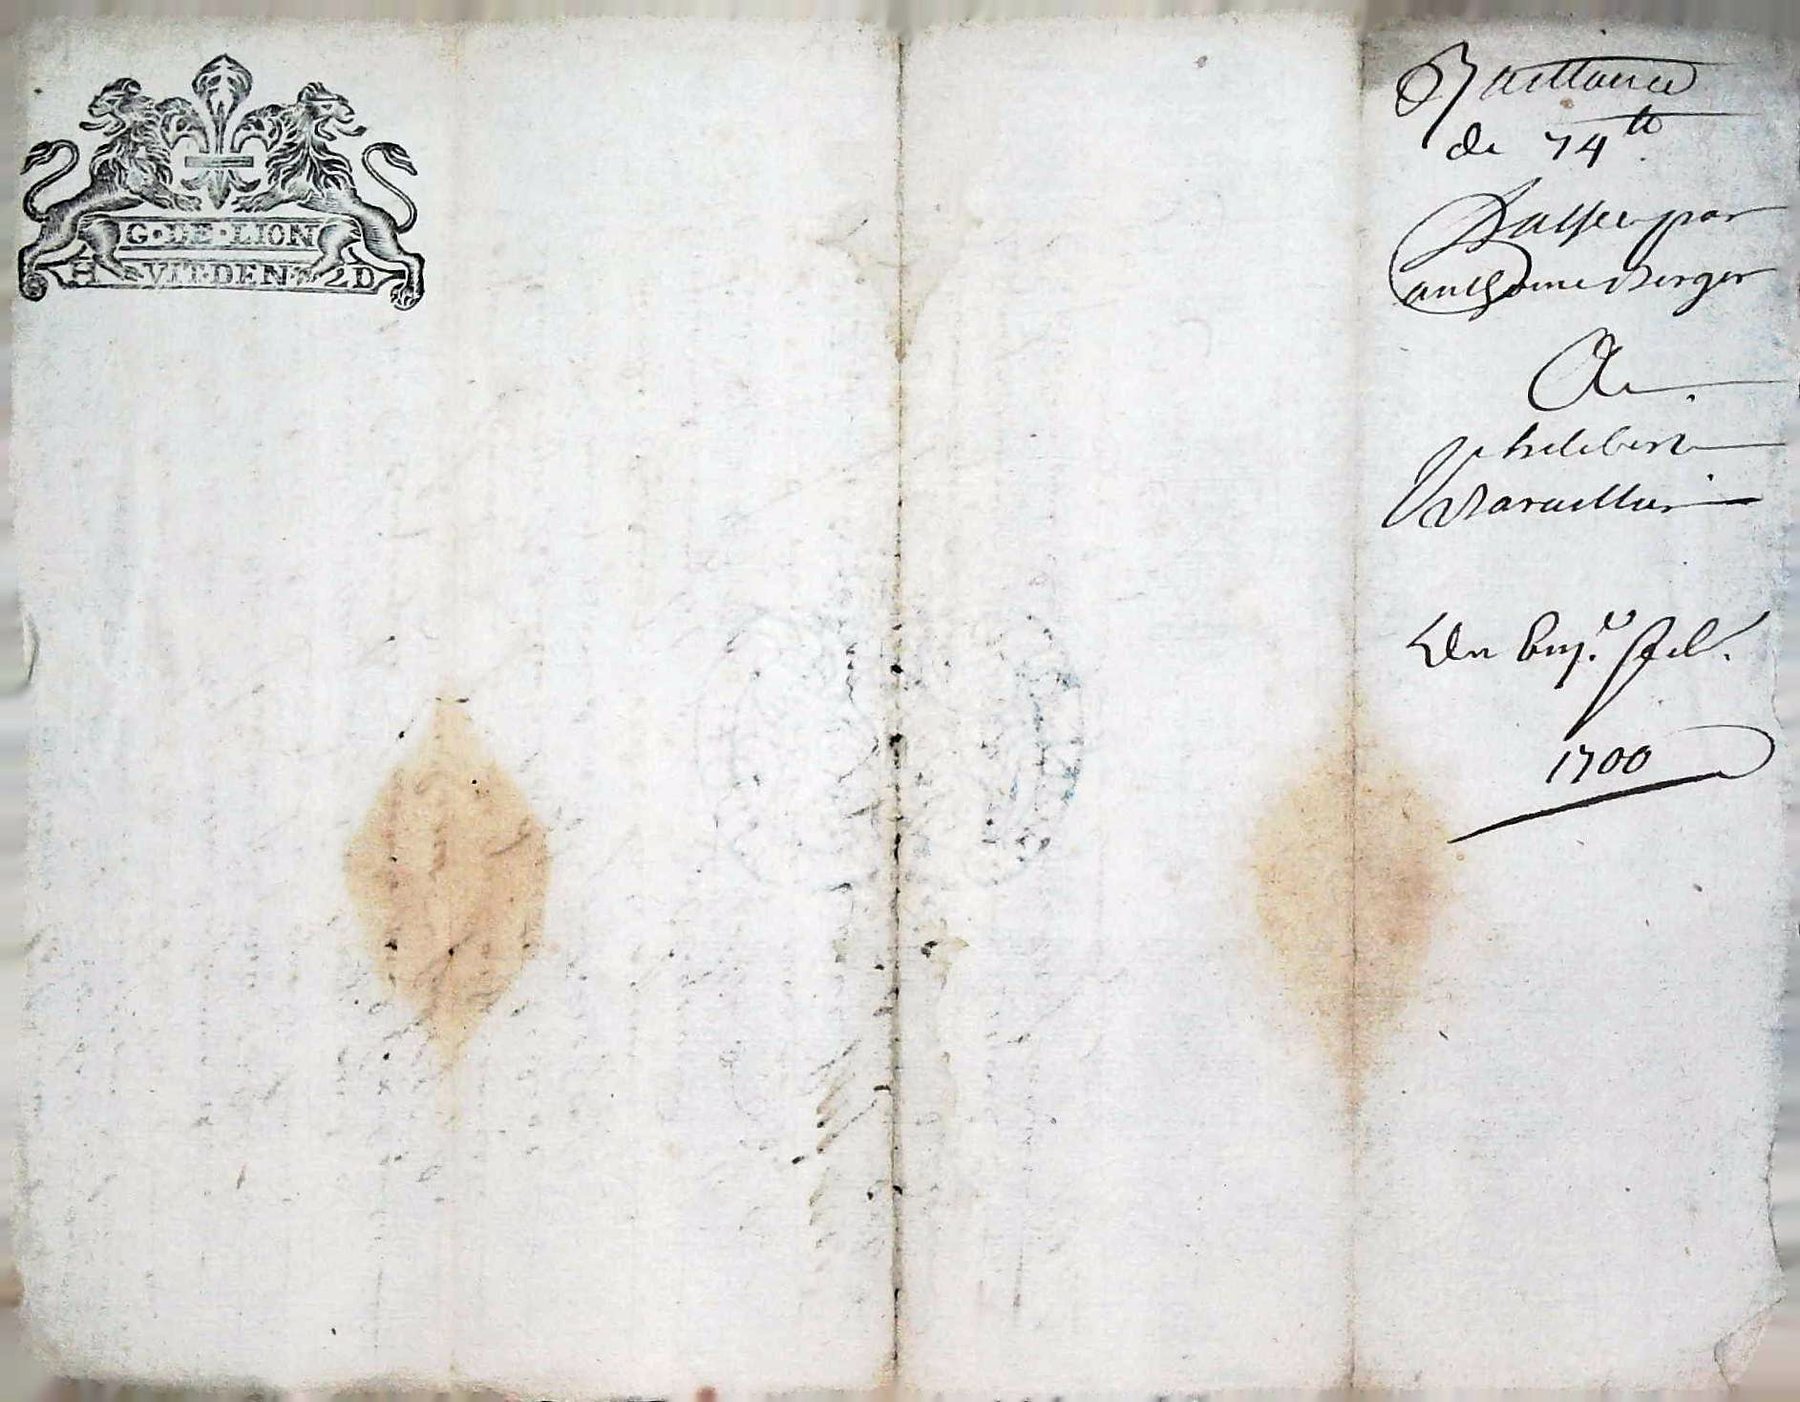 G·DE·LION
H VIT·DEN 2D
Quittance
de 74 tt
Passée par
anthoine Berger
A
philibert
Baraillier
Du 6me
1700